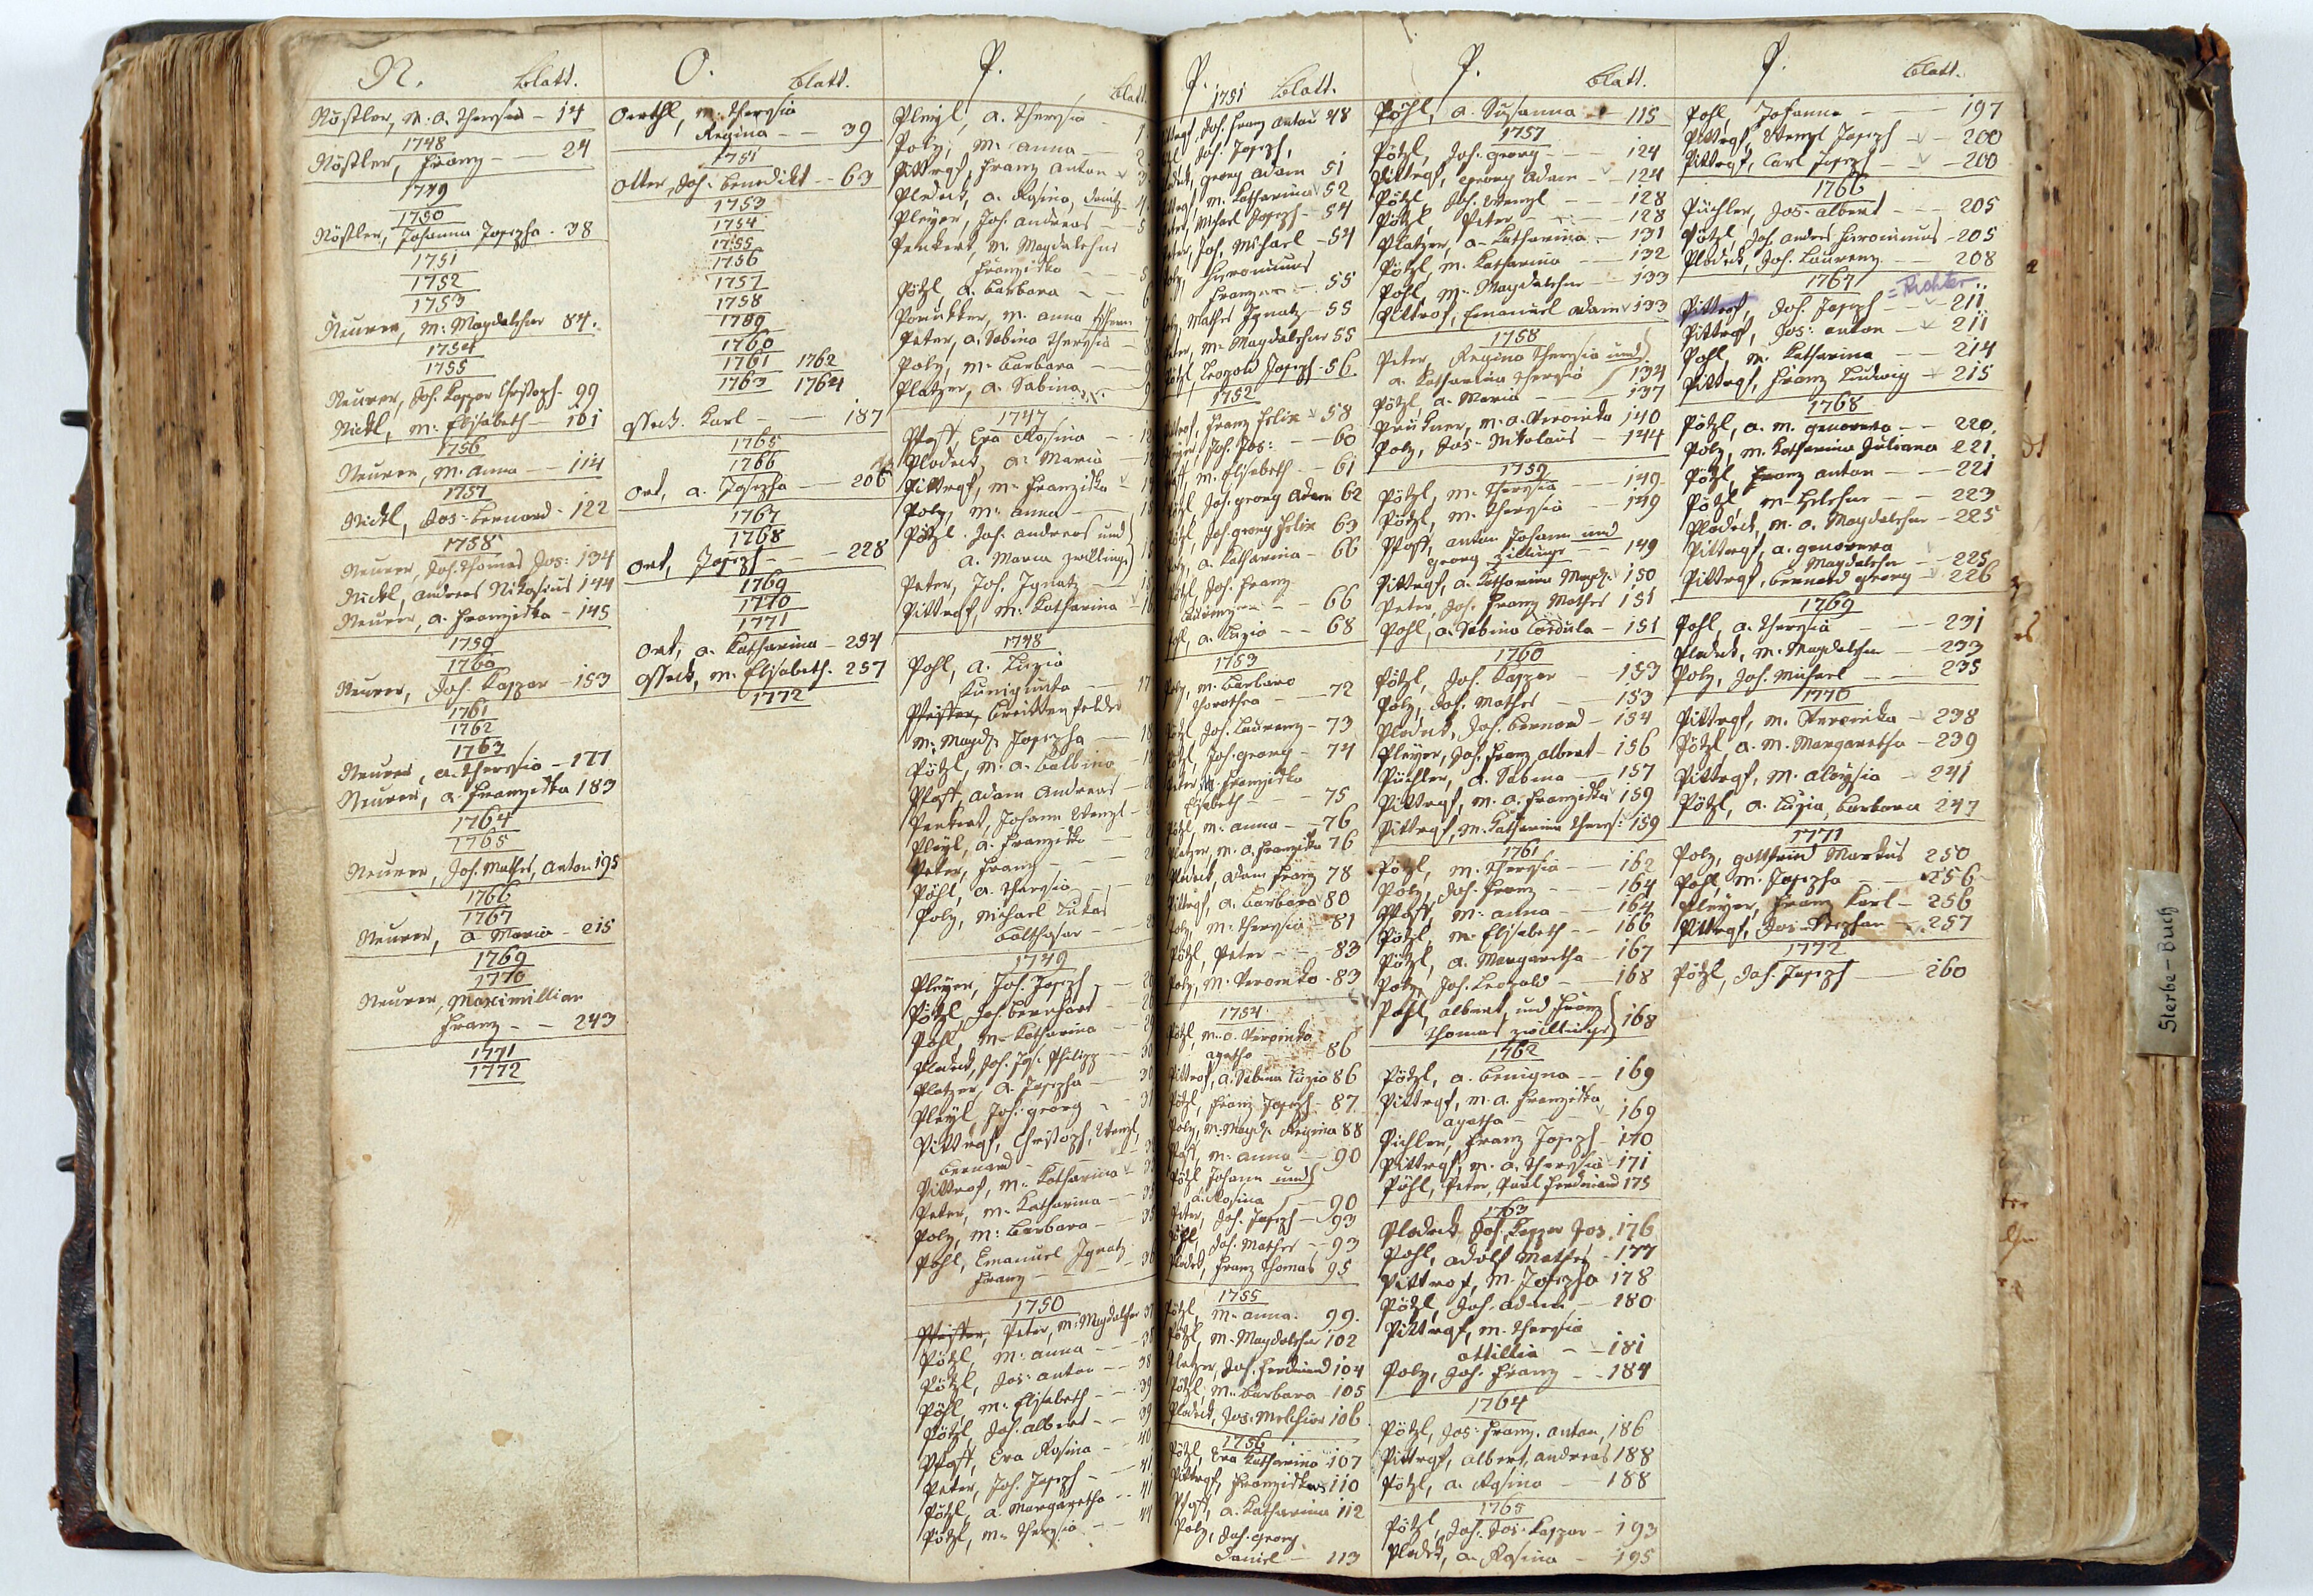 N. Blatt.
Nößler, M. A. Theresia - 14
1748
Nößler, Franz - 24
1749
1750
Nößler, Johanna Josepha - 38
1751
1752
1753
Neurer, M: Magdalehna 84.
1754
1755
Neurer, Joh. Kaspar Christoph - 99
Nickl, M: Elisabeth - 101
1756
Neurer, M. Anna - 114
1757
Nickl, Jos: Bernard - 122
1758
Neurer, Joh. Thomas Jos: 134
Nickl, Andreas Nikasius 144
Neurer, A. Franziska - 145
1759
1760
Neurer, Joh. Kaspar - 153
1761
1762
1763
Neurer, A. Theresia - 177
Neurer, A. Franziska 183
1764
1765
Neurer, Joh. Mathes, Anton 195
1766
1767
Neurer, A Maria - 215
1769
1770
Neurer, Maximillian
Franz - - 243
1771
1772
O. Blatt.
Oerthl, M. Theresia
Regina - - 39
1751
Otter, Joh: Benedikt - - 63
1753
1754
1755
1756
1757
1758
1759
1760
1761 1762
1763 1764
Karl - 187
1765
1766
Ort, A. Josepha - 206
1767
1768
Ort, Joseph - - 228
1769
1770
1771
Ort, A. Katharina - 254
M. Elisabeth - 257
1772
P. Blatt.
Pleyl, A. Theresia - 1
Polz, M: Anna - 2
Pittrof, Franz Anton 3
Pladeck, A. Rosina, 4
Pleyer, Joh: Andreas - 5
Penkert, M. Magdalehna
Franziska - - 5
Pötzl, A. Barbara - - 6
M. Anna
Peter, A. Sabina Theresia - 8
Polz, M: Barbara - - 9
Platzer, A. Sabina 9
1747
Pfoff, Eva Rosina - - 12
Pladeck, A. Maria - 12
Pittrof, M: Franziska
Polz, M: Anna -
Pötzl. Joh: Andreas und
A. Maria Zwillinge
Peter, Joh. Ignatz -
Pittrof, M: Katharina - 16
1748
Pohl, A. Luzia
Kunigunta - 17
Pfeiffer, Breittenfelder
M: Magd. Josepha - 18
Pötzl, M. A. Balbina - 18
Pfoff, Adam Andreas -
Penkert, Johann Wenzl -
Pleyl, A. Franziska -
Peter, Franz - - -
Pöhl, A. Theresia - -
Polz, Michael Lukas
Balthasar - -
1749
Pleyer, Joh: Joseph - - 26
Pötzl, Joh Bernhart - 26
Pohl, M: Katharina - - 29
Pladeck, Joh. Jos: Philipp - - 30
Platzer, A. Josepha - 30
Pleyl, Joh: Georg - - 31
Pittrof, Christoph, Wenzl,
Bernard -
Pittrof, M: Katharina
Peter, M: Katharina - - 35
Polz, M: Barbara - - 35
Pöhl, Emanuel Ignatz
Franz - - - 36
1750
Pfeiffer, Peter, M: Magdalehna 37
Pötzl, M: Anna - - 38
Pötzl, Jos: Anton - - 38
Pöhl, M: Elisabeth - - 39
Pötzl, Joh: Albert - - 39
Pfoff, Eva Rosina - - 40
Peter, Joh. Joseph - - 41
Pötzl, A. Margaretha - - 41
Pötzl, M: Theresia - - 44
P. 1751 Blatt.
Joh. Franz Anton 48
Joh. Joseph,
Georg Adam 51
M. Katharina 52
Michael Joseph - 54
Joh, Michael - 54
Hyronimus
Franz - - 55
Mathes Ignatz - 55
M: Magdalehna 55
Leopold Joseph - 56
1752
Franz Felix 58
Joh. Jos: - - 60
M. Elisabeth - - 61
Joh. Georg Adam 62
Joh. Georg Felix 63
A. Katharina - 66
Pötzl, Joh. Franz
Laurenz - - 66
A. Luzia - - 68
1753
M. Barbara
Dorothea - - 72
Joh. Laurenz - 73
Joh. Georg - 74
Peter, M. Franziska
Elisabeth - - 75
Pötzl, M. Anna - - 76
Platzer, M. A. Franziska 76
Pladeck, Adam Franz 78
Pittrof, A. Barbara 80
Polz, M: Theresia - 81
Pötzl, Peter - - - 83
Polz, M: Veronika - 83
1754
Pötzl, M: A. Veronika
Agatha - - 86
Pittrof, A. Sabina Luzia 86
Pötzl, Franz Joseph - 87
Polz, M: Magd. Regina 88
Pfoff, M: Anna - - 90
Pötzl, Johann und
A. Rosina - 90
Peter, Joh: Joseph - 93
Joh. Mathes - 93
Pladeck, Franz Thomas 95
1755
Pötzl, M: Anna. 99.
Pötzl, M: Magdalehna 102
Platzer, Joh. Ferdinand 104
Pötzl, M: Barbara - 105
Pladeck, Jos: Melchior 106
1756
Pötzl, Eva Katharina - 107
Pittrof, Franziskus 110
Pfoff, A. Katharina 112
Polz, Joh: Georg
Daniel - 113
P. Blatt.
Pöhl, A. Susanna - 115
1757
Pötzl, Joh: Georg - - 124
Pittrof, Georg Adam - 124
Pötzl, Joh. Wenzl - - 128
Pötzl, Peter - - - 128
Platzer, A. Katharina - 131
Pötzl, M. Katharina - - 132
Pohl, M: Magdalehna - 133
Pittrof, Emanuel Adam 133
1758
Peter, Regina Theresia und
A. Katharina Theresia 134
Pötzl, A. Maria - - 137
M. A. Veronika 140
Polz, Jos: Nikolaus - 144
1759
Pötzl, M: Theresia - - 149
Pötzl, M. Theresia - - 149
Pfoff, Anton Johann und
Georg Zillinge - - 149
Pittrof, A. Katharina Magd. 150
Peter, Joh: Franz Mathes 151
Pohl, A. Sabina Cordula - 151
1760
Pötzl, Joh. Kaspar - 153
Polz, Joh: Mathes - 153
Pladeck, Joh. Bernard - 154
Pleyer, Joh. Franz Albert - 156
Püchler, A. Sabina - 157
Pittrof, M. A. Franziska 159
Pittrof, M. Katharina Theres: 159
1761
Pötzl, M. Theresia - 162
Polz, Joh: Franz - - - 164
Pfoff, M: Anna - - 164
Pötzl, M: Elisabeth - - 166
Pötzl, A. Margaretha - 167
Polz, Joh. Leopold - - 168
Pohl, Albert, und Franz
Thomas Zwillinge 168
1762
Pötzl, A. Benigna - - 169
Pittrof, M. A. Franziska
Agatha - 169
Pichler, Franz Joseph - 170
Pittrof, M. A. Theresia 171
Pöhl, Peter, Paul Ferdinand 175
1763
Pladeck, Joh. Kaspar Jos. 176
Pohl, Adolf Mathes - 177
Pittrof, M. Josepha 178
Pötzl, Joh. Adam - 180
Pittrof, M. Theresia
Ottillia - - 181
Polz, Joh: Franz - - 184
1764
Pötzl, Jos: Franz. Anton, 186
Pittrof, Albert, Andreas 188
Pötzl, A. Rosina - 188
1765
Pötzl, Joh. Jos: Kaspar - 193
Pladeck, A. Rosina - 195
P. Blatt.
Pohl, Johanna - - 197
Pittrof, Wenzl Joseph - 200
Pittrof, Carl Joseph - 200
1766
Püchler, Jos: Albert - - 205
Pötzl, Joh. Andres Hieronimus - 205
Pladeck, Joh. Laurenz - - 208
1767
Pittrof, Joh. Joseph - 211
Pittrof, Jos: Anton - 211
Pohl, M. Katharina - - 214
Pittrof, Franz Ludwig - 215
1768
Pötzl, A. M. Genovева - - 220.
Polz, M. Katharina Juliana 221.
Pötzl, Franz Anton - - 221
Pötzl, M: Helehna - - 223
Pladeck, M. A. Magdalehna - 225
Pittrof, A. Genoveva
Magdalehna - 225
Pittrof, Bernard Georg - 226
1769
Pohl, A. Theresia - - 231
Pladeck, M. Magdalehna - 233
Polz, Joh. Michael - - 235
1770
Pittrof, M. Veronika - 238
Pötzl, A. M. Margaretha - 239
Pittrof, M. Aloysia - 241
Pötzl, A. Luzia, Barbara 247
1771
Polz, Gottfried Markus 250
Pohl, M. Josepha - - 256
Pleyer, Franz Karl - 256
Pittrof, Jos: Stephan - 257
1772
Pötzl, Joh. Joseph - 260
Sterbe-Buch